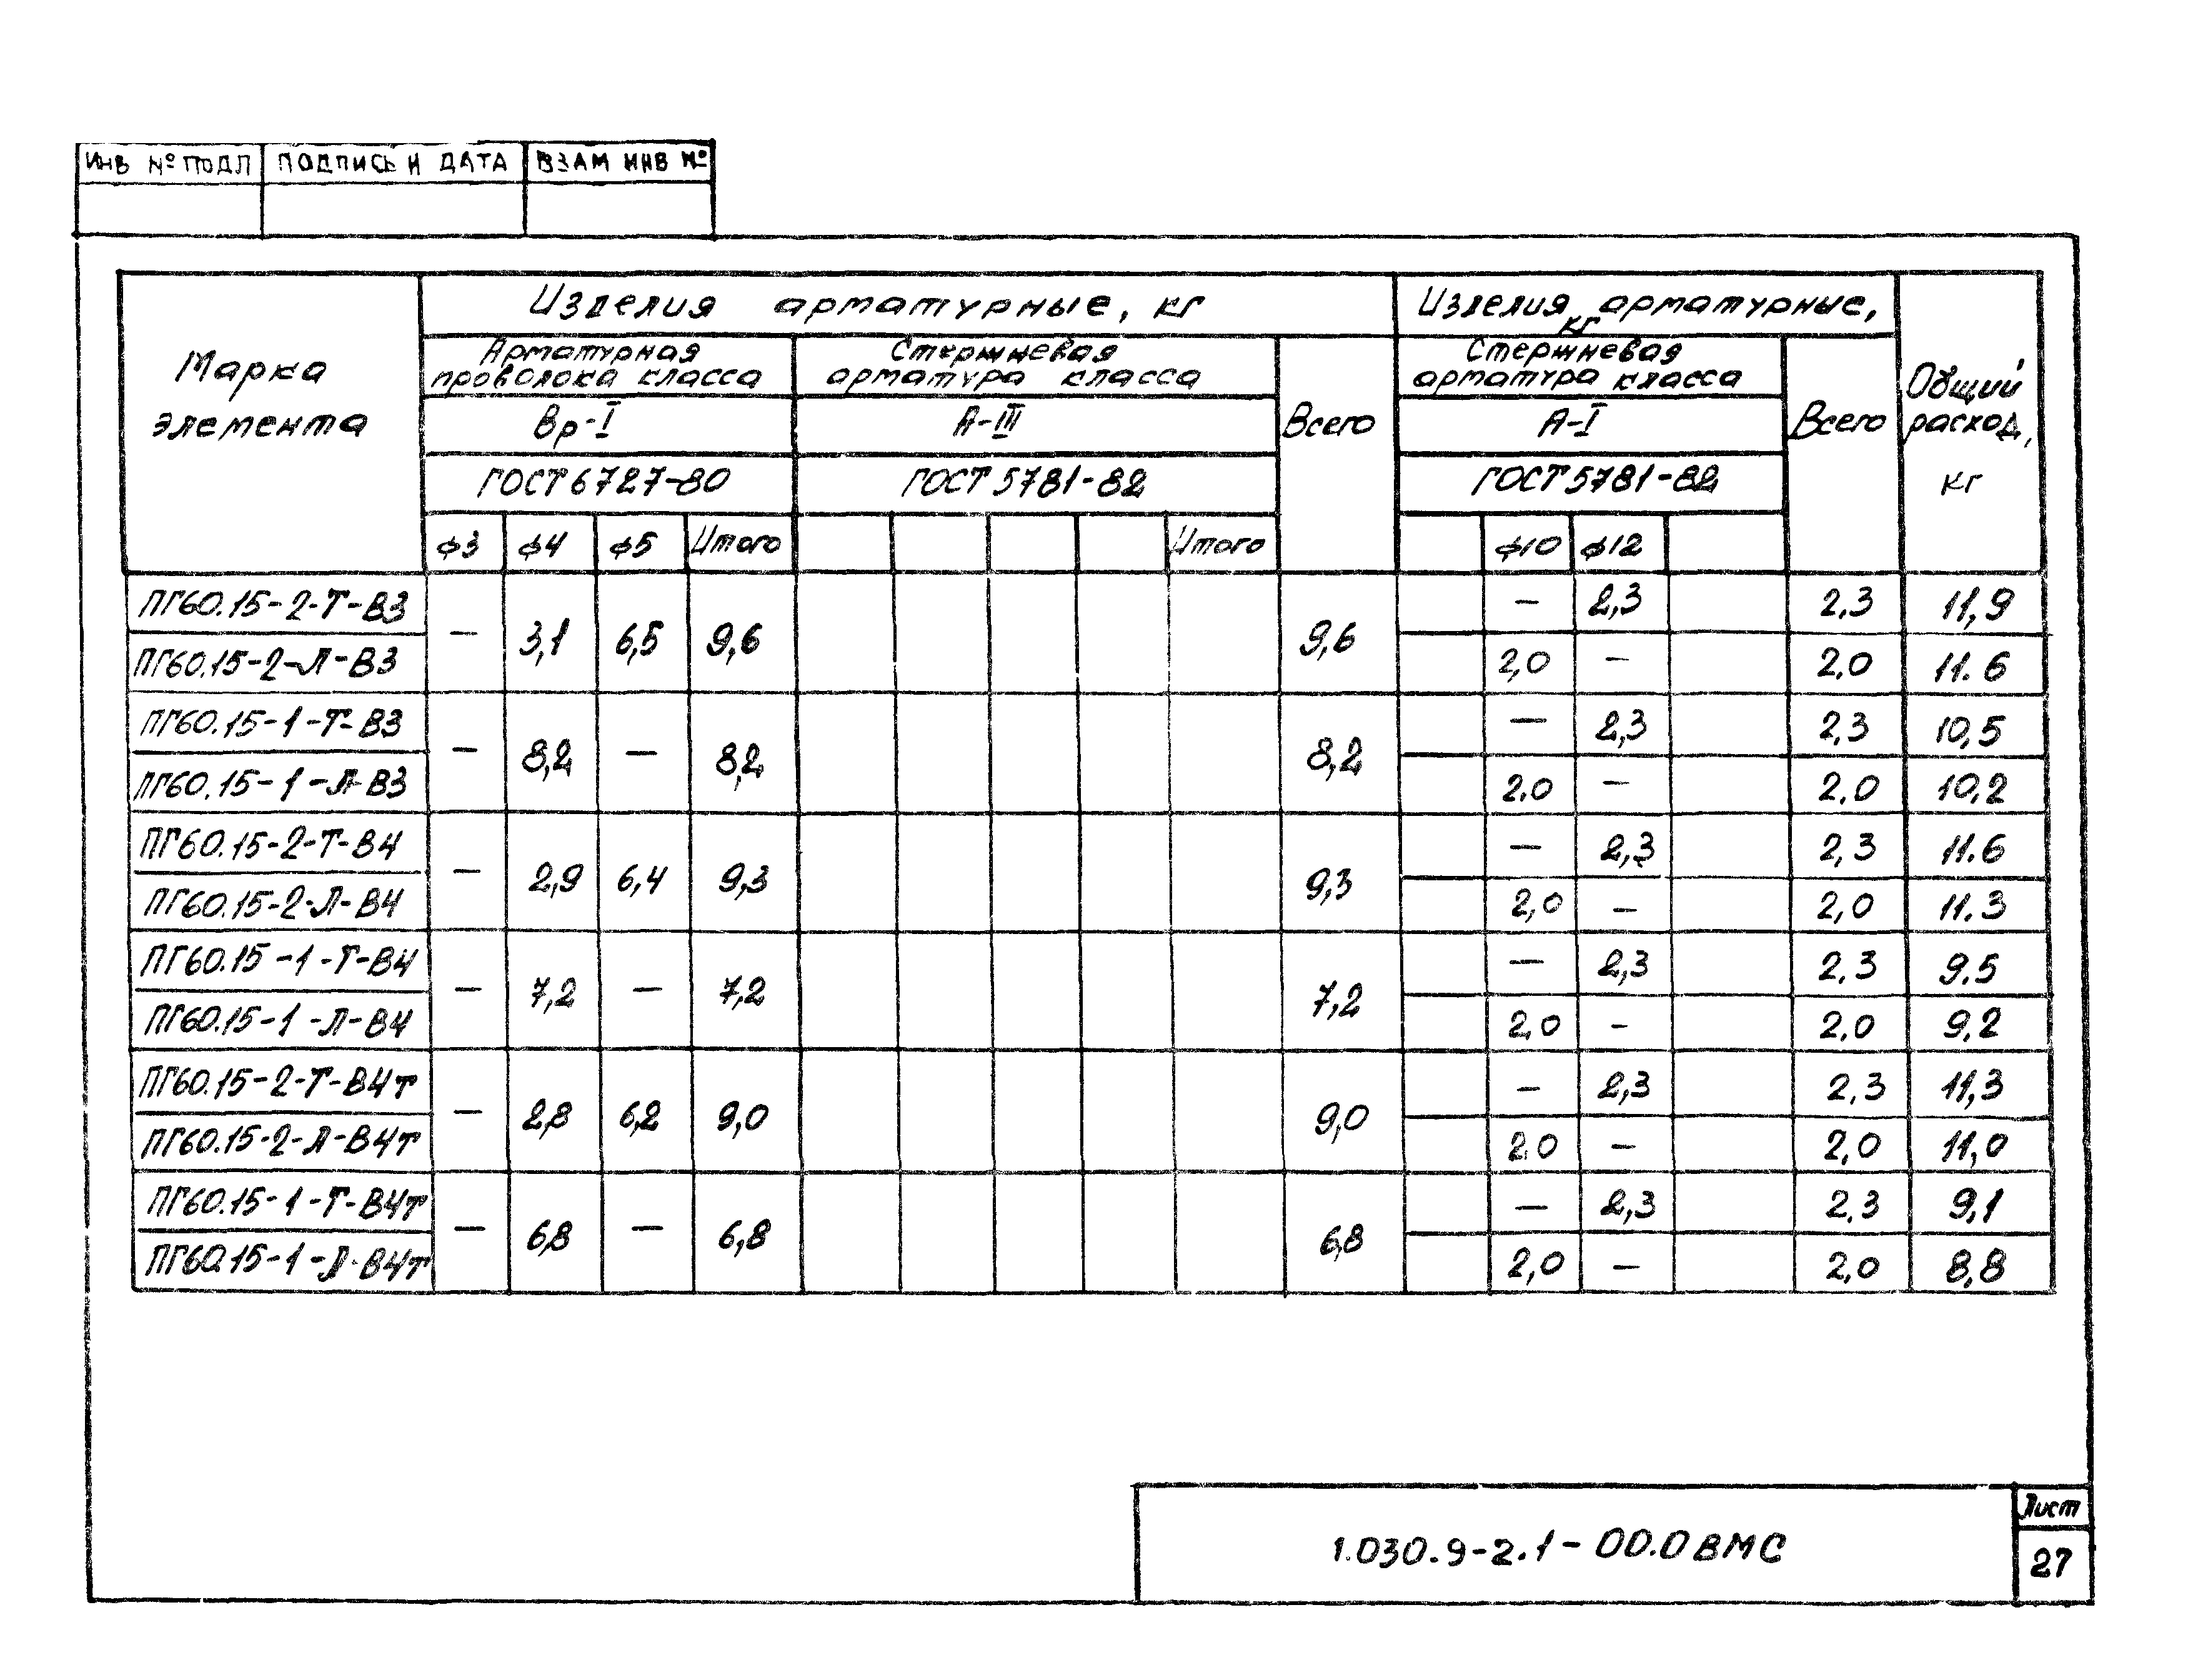 ИНВ № ПОДЛ ПОДПИСЬ И ДАТА ВЗАМ ИНВ №
Марка
элемента
Изделия арматурные, кг
Изделия арматурные,
кг
Арматурная
проволока класса
Стержневая
арматура класса
Стержневая
арматура класса
Вр-I
А-III
Всего
А-I
Всего
Общий
расход,
кг
ГОСТ 6727-80
ГОСТ 5781-82
ГОСТ 5781-82
ф3 ф4 ф5 Итого Итого ф10 ф12
ПГ60.15-2-Т-В3 — 3,1 6,5 9,6 9,6 — 2,3 2,3 11,9
ПГ60.15-2-Л-В3 2,0 — 2,0 11.6
ПГ60.15-1-Т-В3 — 8,2 — 8,2 8,2 — 2,3 2,3 10,5
ПГ60.15-1-Л-В3 2.0 — 2,0 10,2
ПГ60.15-2-Т-В4 — 2,9 6,4 9,3 9,3 — 2,3 2,3 11.6
ПГ60.15-2-Л-В4 2,0 — 2,0 11.3
ПГ60.15-1-Т-В4 — 7,2 — 7,2 7,2 — 2,3 2,3 9.5
ПГ60.15-1-Л-В4 2,0 — 2,0 9,2
ПГ60.15-2-Т-В4т — 2,8 6,2 9,0 9,0 — 2,3 2,3 11,3
ПГ60.15-2-Л-В4т 2.0 — 2,0 11,0
ПГ60.15-1-Т-В4т — 6,8 — 6,8 6,8 — 2,3 2,3 9,1
ПГ60.15-1-Л-В4т 2,0 — 2,0 8,8
1.030.9-2.1-00.0 ВМС
Лист
27